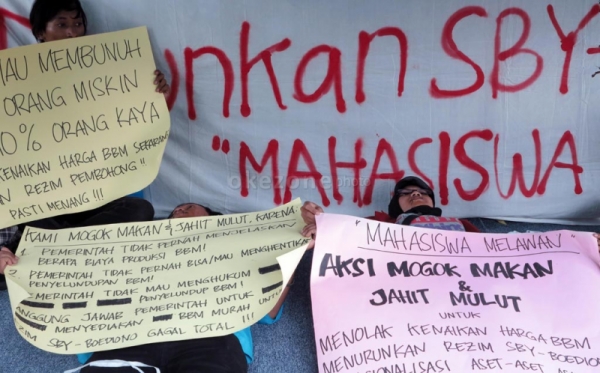 unkan SBY-
"MAHASISWA"
okezone photo
AU MEMBUNUH
ORANG MISKIN
0% ORANG KAYA
KENAIKAN HARGA BBM SEKARANG
AN REZIM PEMBOHONG"
PASTI MENANG !!!
KAMI MOGOK MAKAN & JAHIT MULUT, KARENA
1 PEMERINTAH TIDAK PERNAH MENJELASKAN
BERAPA BIAYA PRODUKSI BBM!
PEMERINTAH TIDAK PERNAH BISA/MAU MENGHENTIK
PENYELUNDUPAN BBM!
EMERINTAH TIDAK MAU MENGHUKUM
PENYELUNDUP BBM!
ANGGUNG JAWAB PEMERINTAH UNTUK
MENYEDIAKAN BBM MURAH UNTUK
ZIM SBY-BOEDIONO GAGAL TOTAL !!!
"MAHASISWA MELAWAN"
AKSI MOGOK MAKAN
&
JAHIT MULUT
UNTUK
MENOLAK KENAIKAN HARGA BBM
MENURUNKAN REZIM SBY-BOEDIONO
SIONALISASI ASET-ASET